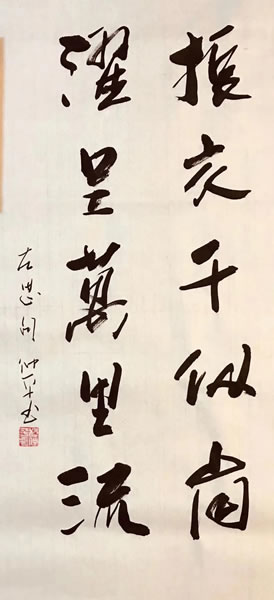 振衣千仞崗
濯足萬里流
左思句 仲平书